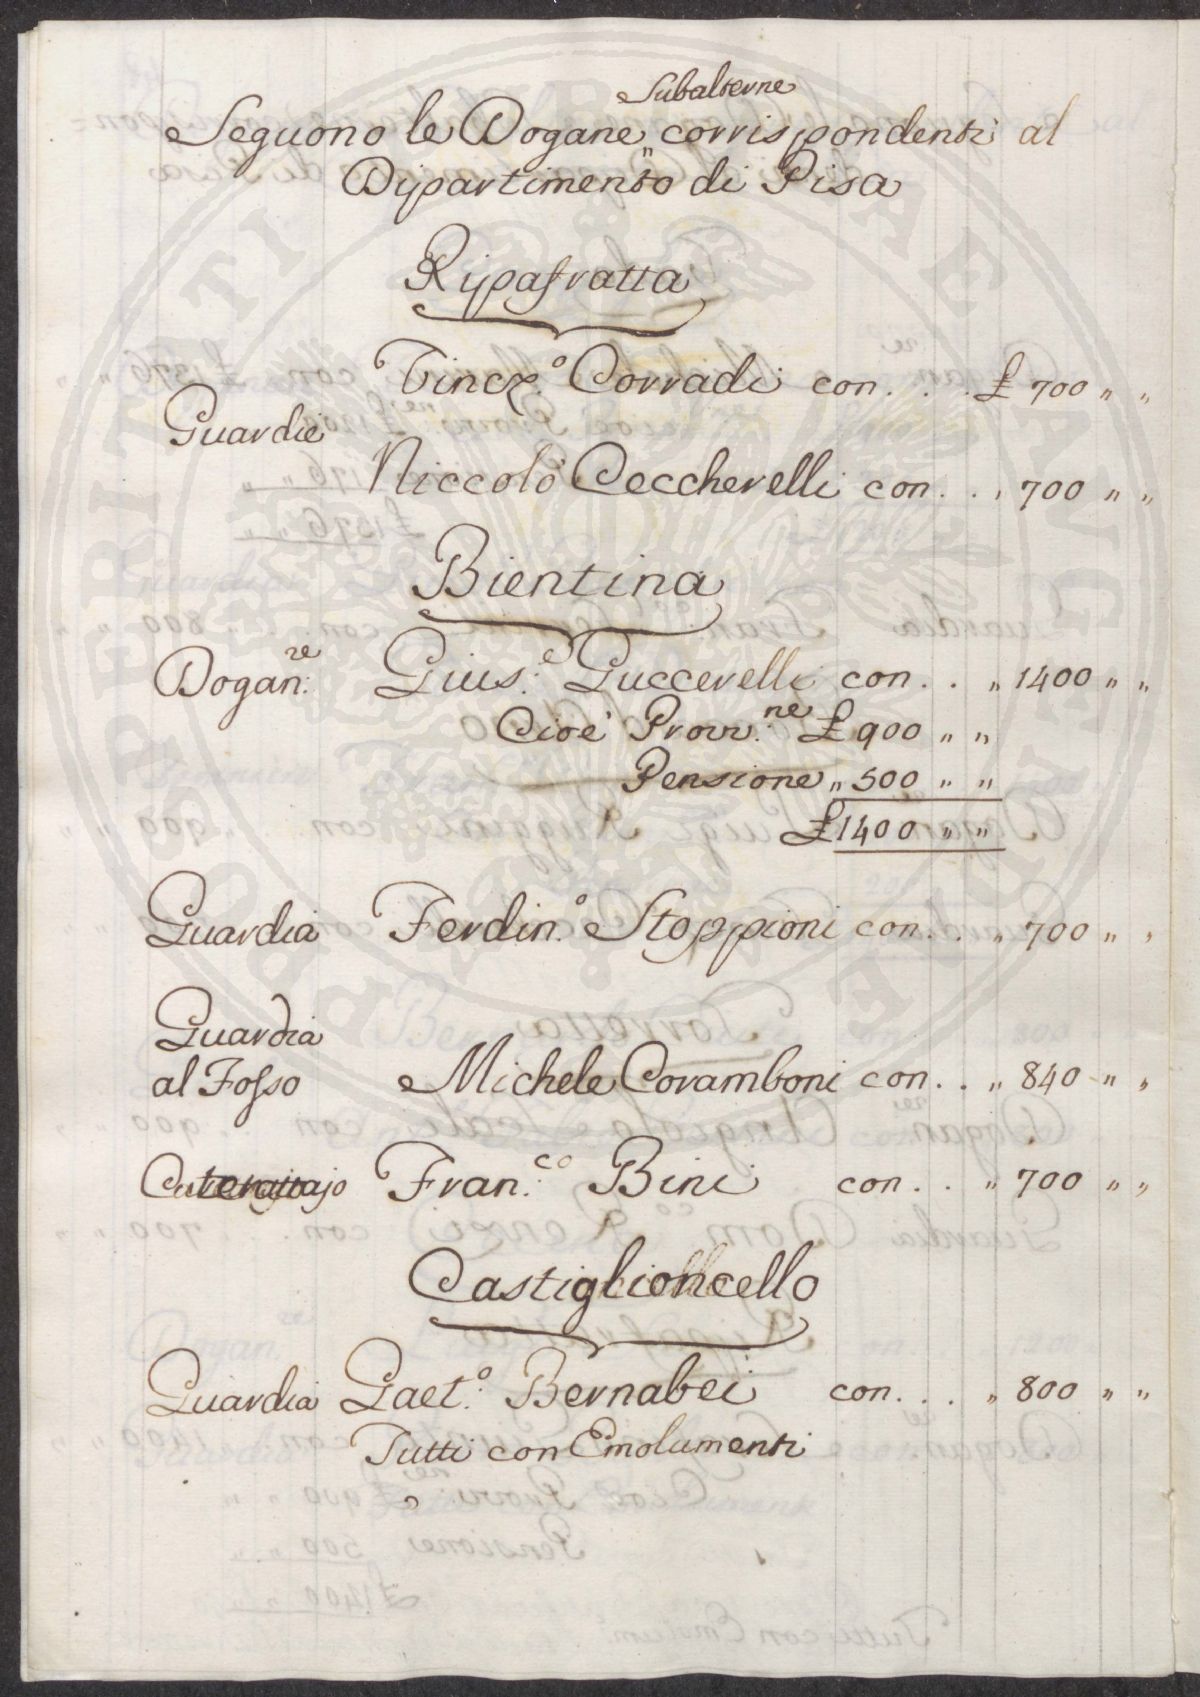 Subalterne
Seguono le Dogane „ corrispondenti al
Dipartimento di Pisa
Ripafratta
Vincz.o Corradi con . . . £ 700 „ „
Guardie
Niccolò Ceccherelli con . . . 700 „ „
Bientina
Dogan:re Gius:e Guccerelli con . . „ 1400 „ „
Cioè Provv:ne £ 900 „ „
Pensione „ 500 „ „
£ 1400 „ „
Guardia Ferdin.o Stoppioni con . . „ 700 „ „
Guardia
al Fosso Michele Coramboni con . . „ 840 „ „
Fran:co Bini con . . „ 700 „ „
Castiglioncello
Guardia Gaet:o Bernabei con . . . „ 800 „ „
Tutti con Emolumenti